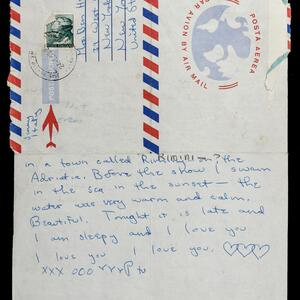 POSTA AEREA
PAR AVION BY AIR MAIL
22 West
New York
New York
United St
Italy
in a town called Rimini on the
Adriatic. Before the show I swam
in the sea in the sunset — the
water was very warm and calm.
Beautiful. Tonight it is late and
I am sleepy and I love you
I love you I love you. ♡♡♡
xxx ooo